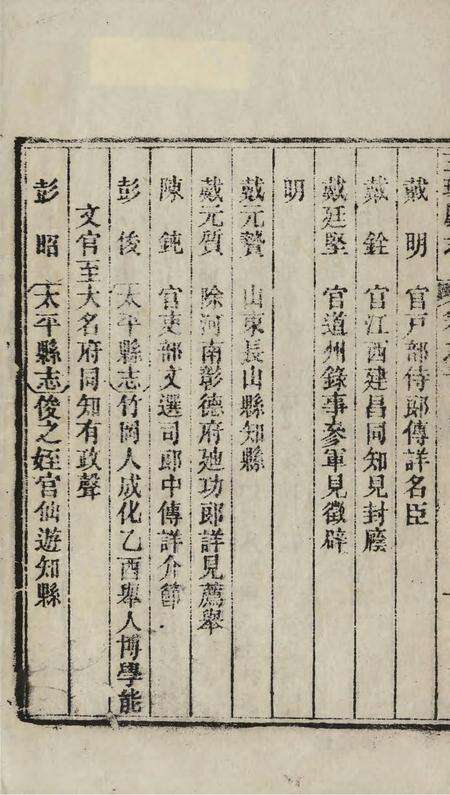 戴明　官戸部侍郎傳詳名臣
戴銓　官江西建昌同知見封廕
戴廷堅　官道州錄事參軍見徵辟
明
戴元贄　山東長山縣知縣
戴元質　除河南彰德府廸功郎詳見薦舉
陳鈍　官吏部文選司郎中傳詳介節
彭俊　（太平縣志）竹岡人成化乙酉舉人博學能
文官至大名府同知有政聲
彭昭　（太平縣志）俊之姪官仙遊知縣